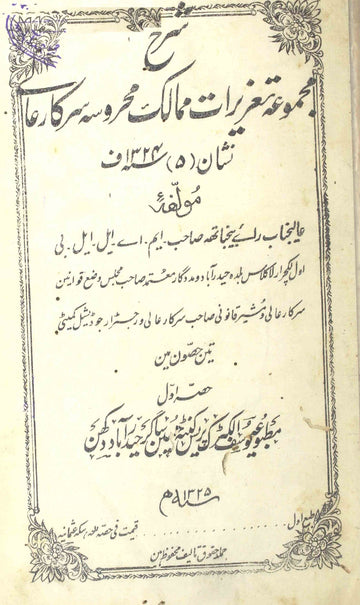 شرح
مجموعہ تعزیرات ممالک محروسہ سرکار عالی
نشان (۵) ۱۳۲۴ سنہ ف
مؤلفہ
عالیجناب رائے بیجناتھ صاحب ایم۔ اے۔ ایل۔ ایل۔ بی
اول لکچرار لا کلاس بلدہ حیدرآباد و مددگار معتمد صاحب مجلس وضع قوانین
سرکار عالی و مشیر قانونی صاحب سرکار عالی و رجسٹرار جوڈیشل کمیٹی
تین حصوں مین
حصہ اول
مطبوعہ پریس حیدرآباد دکن
سنہ ۱۳۲۵ م
طبع اول . . . . . . . . . . قیمت فی حصہ سکہ عثمانیہ
جملہ حقوق تالیف محفوظ ہین